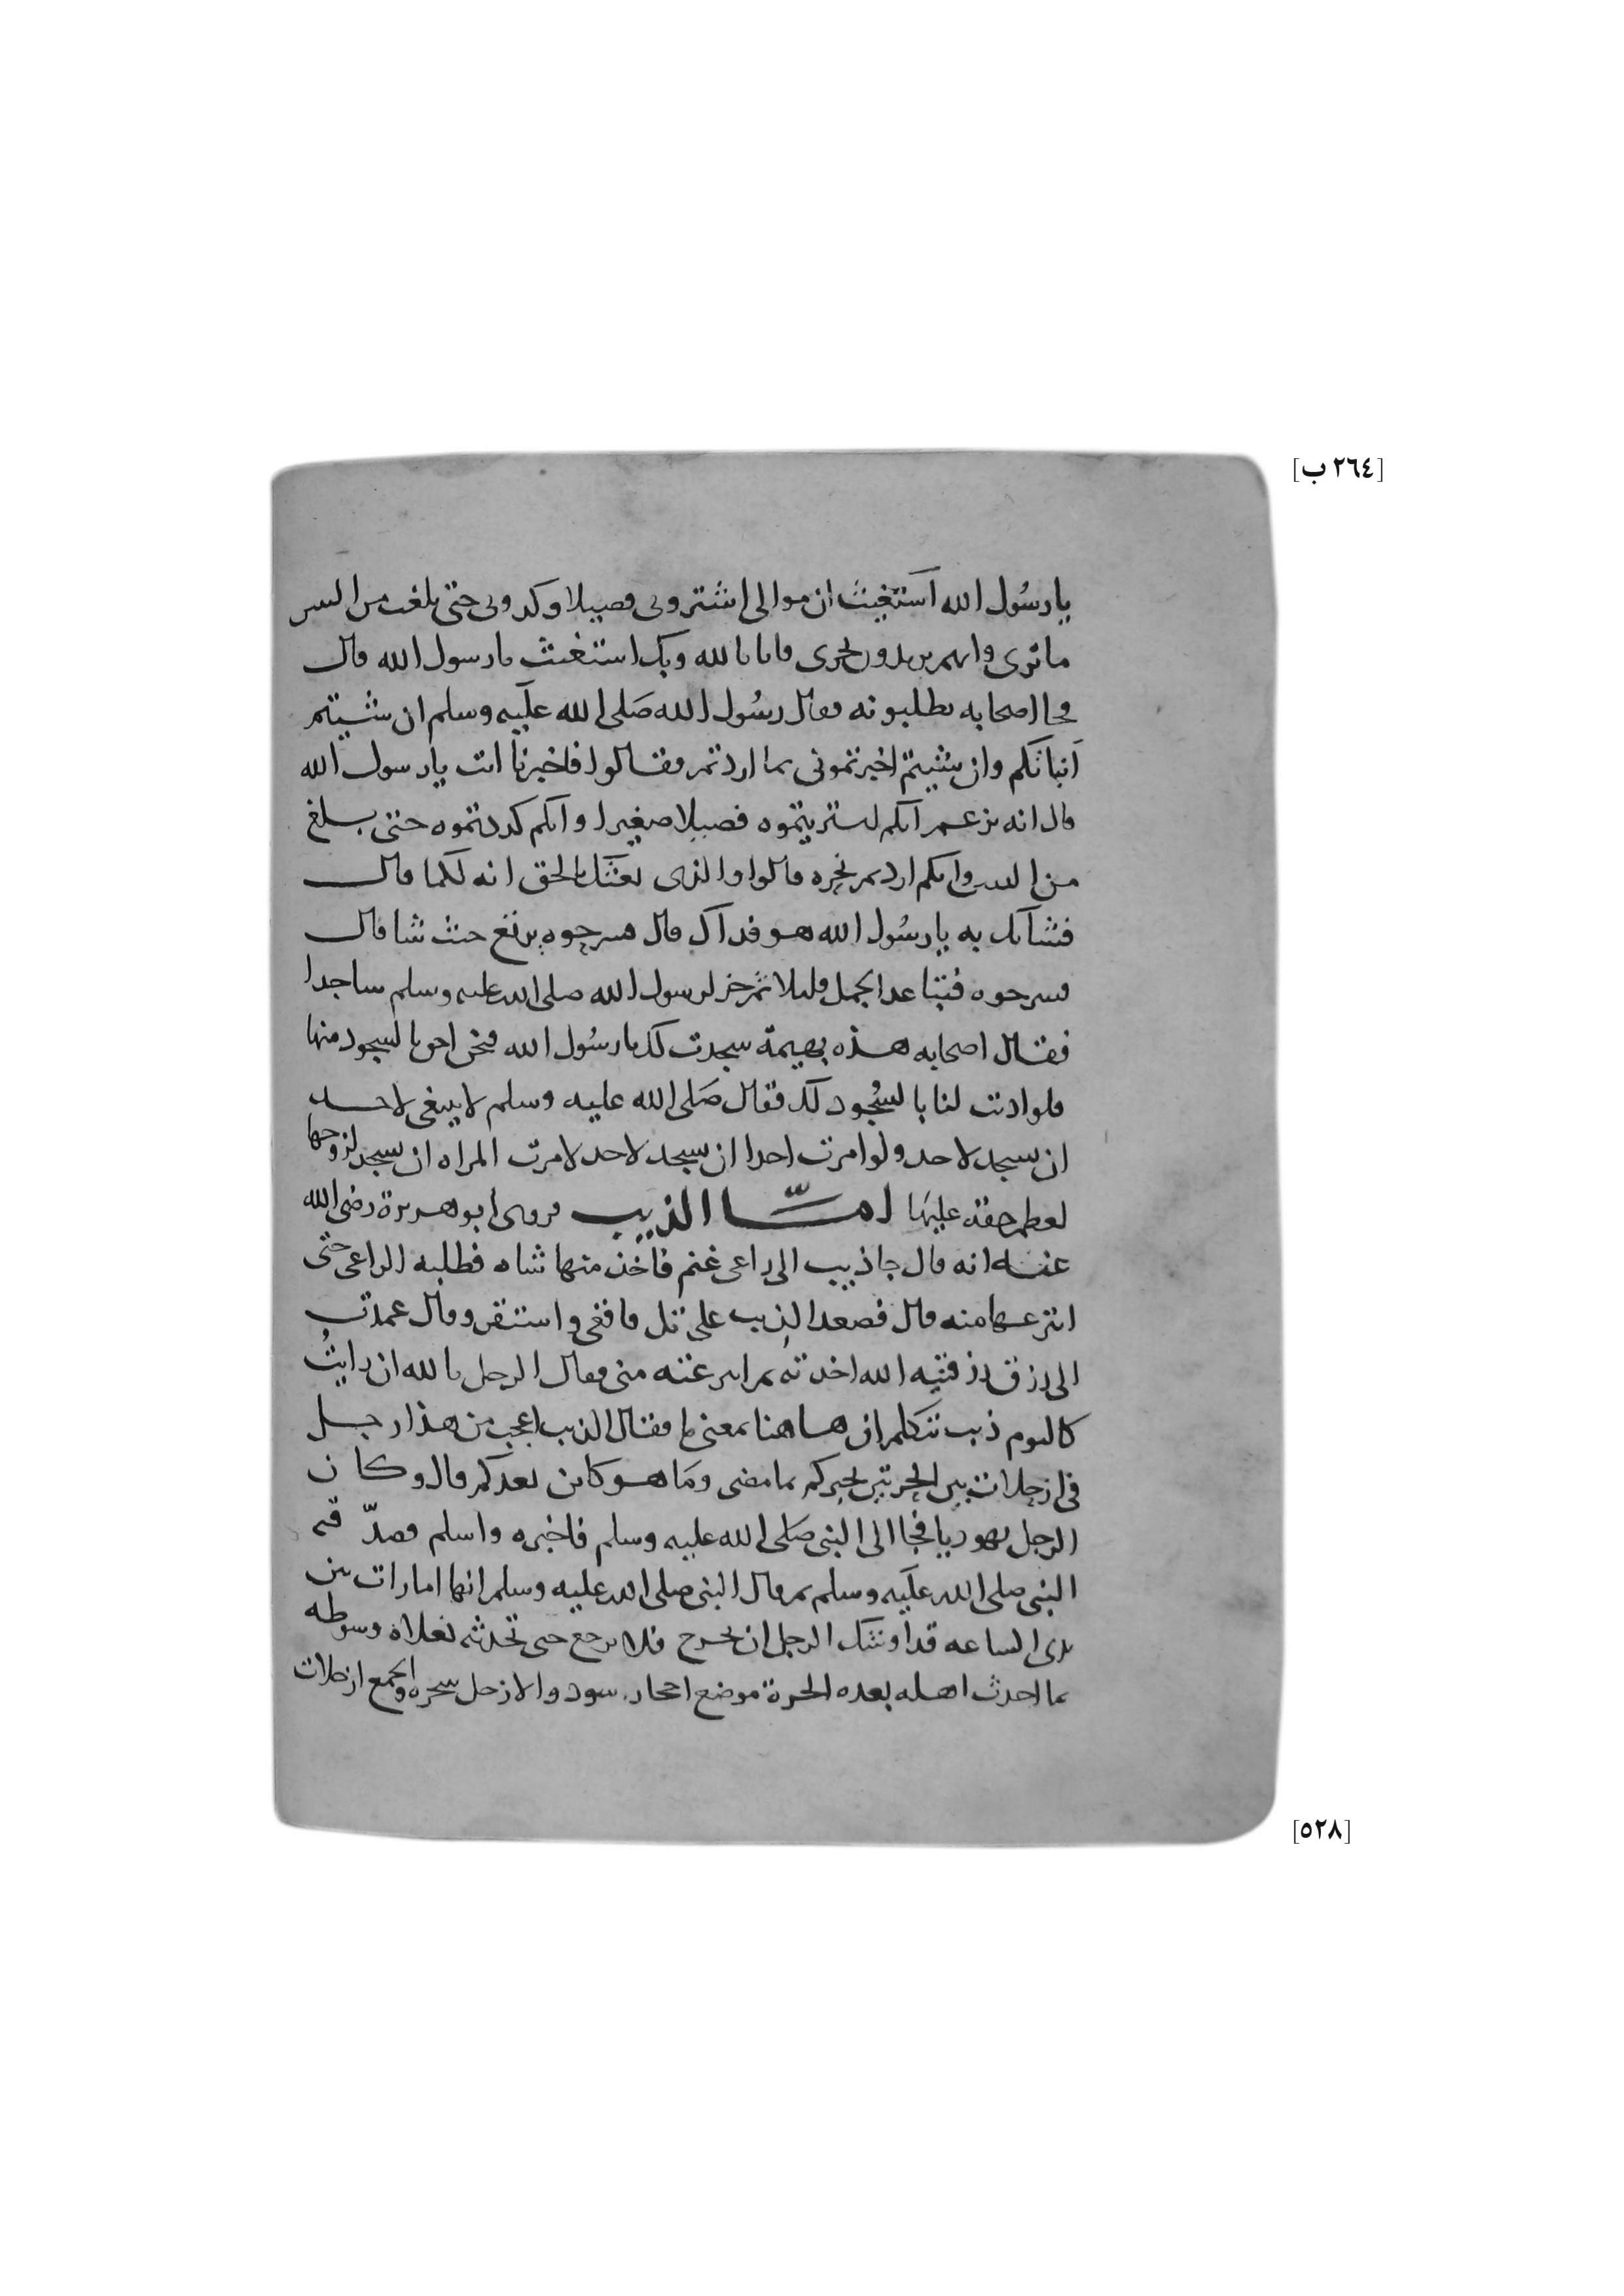 [٢٦٤ ب]
يا رسُول الله استغيث ان موالى اشترونى فصيلا وكدونى حتى بلغت من السن
ما ترى وانهم يريدون نحرى فانا بالله وبك استغيث يا رسول الله قال
فجا اصحابه يطلبونه فقال رسُول الله صَلى الله عليه وسلم ان شيتم
انباتكم وان شيتم اخبرتمونى بما اردتم فقالوا فاخبرنا انت يا رسول الله
قال انه يزعم انكم اشتريتموه فصيلا صغيرا وانكم كددتموه حتى بلغ
من السن وانكم اردتم نحره قالوا والذى بعثك بالحق انه لكما قال
فشانك به يا رسُول الله هو فداك قال سرحوه يرتع حيث شا قال
فسرحوه فتباعد الجمل قليلا ثم خر لرسول الله صلى الله عليه وسلم ساجدا
فقال اصحابه هذه بهيمة سجدت لك يا رسُول الله فنحن احق بالسجود منها
فلو اذنت لنا بالسُجود لك فقال صَلى الله عليه وسلم لا ينبغى لاحد
ان يسجد لاحد ولو امرت احدا ان يسجد لاحد لامرت المراه ان تسجد لزوجها
لعظم حقه عليها امّا الذيب فروى ابو هريرة رضى الله
عنه انه قال جا ذيب الى راعى غنم فاخذ منها شاه فطلبه الراعى حتى
انتزعها منه قال فصعد الذيب على تل فاقعى واستنفر وقال عمدت
الى رزق رزقنيه الله اخذته ثم انتزعته منى فقال الرجل بالله ان رايتُ
كاليوم ذيب يتكلم ان هاهنا بمعنى ما فقال الذيب اعجب من هذا رجل
فى ازحلات بين الحرتين يخبركم بما مضى وما هو كاين بعدكم قال وكان
الرجل يهوديا فجا الى النبى صَلى الله عليه وسلم فاخبره واسلم فصدّقه
النبى صلى الله عليه وسلم ثم قال النبى صلى الله عليه وسلم انها امارات بين
يدى الساعه قد اوشك الرجل ان يخرج فلا يرجع حتى تحدثه نعلاه وسوطه
بما احدث اهله بعده الحرة موضع احجار سود والازحل شجره والجمع ازحلات
[٥٢٨]